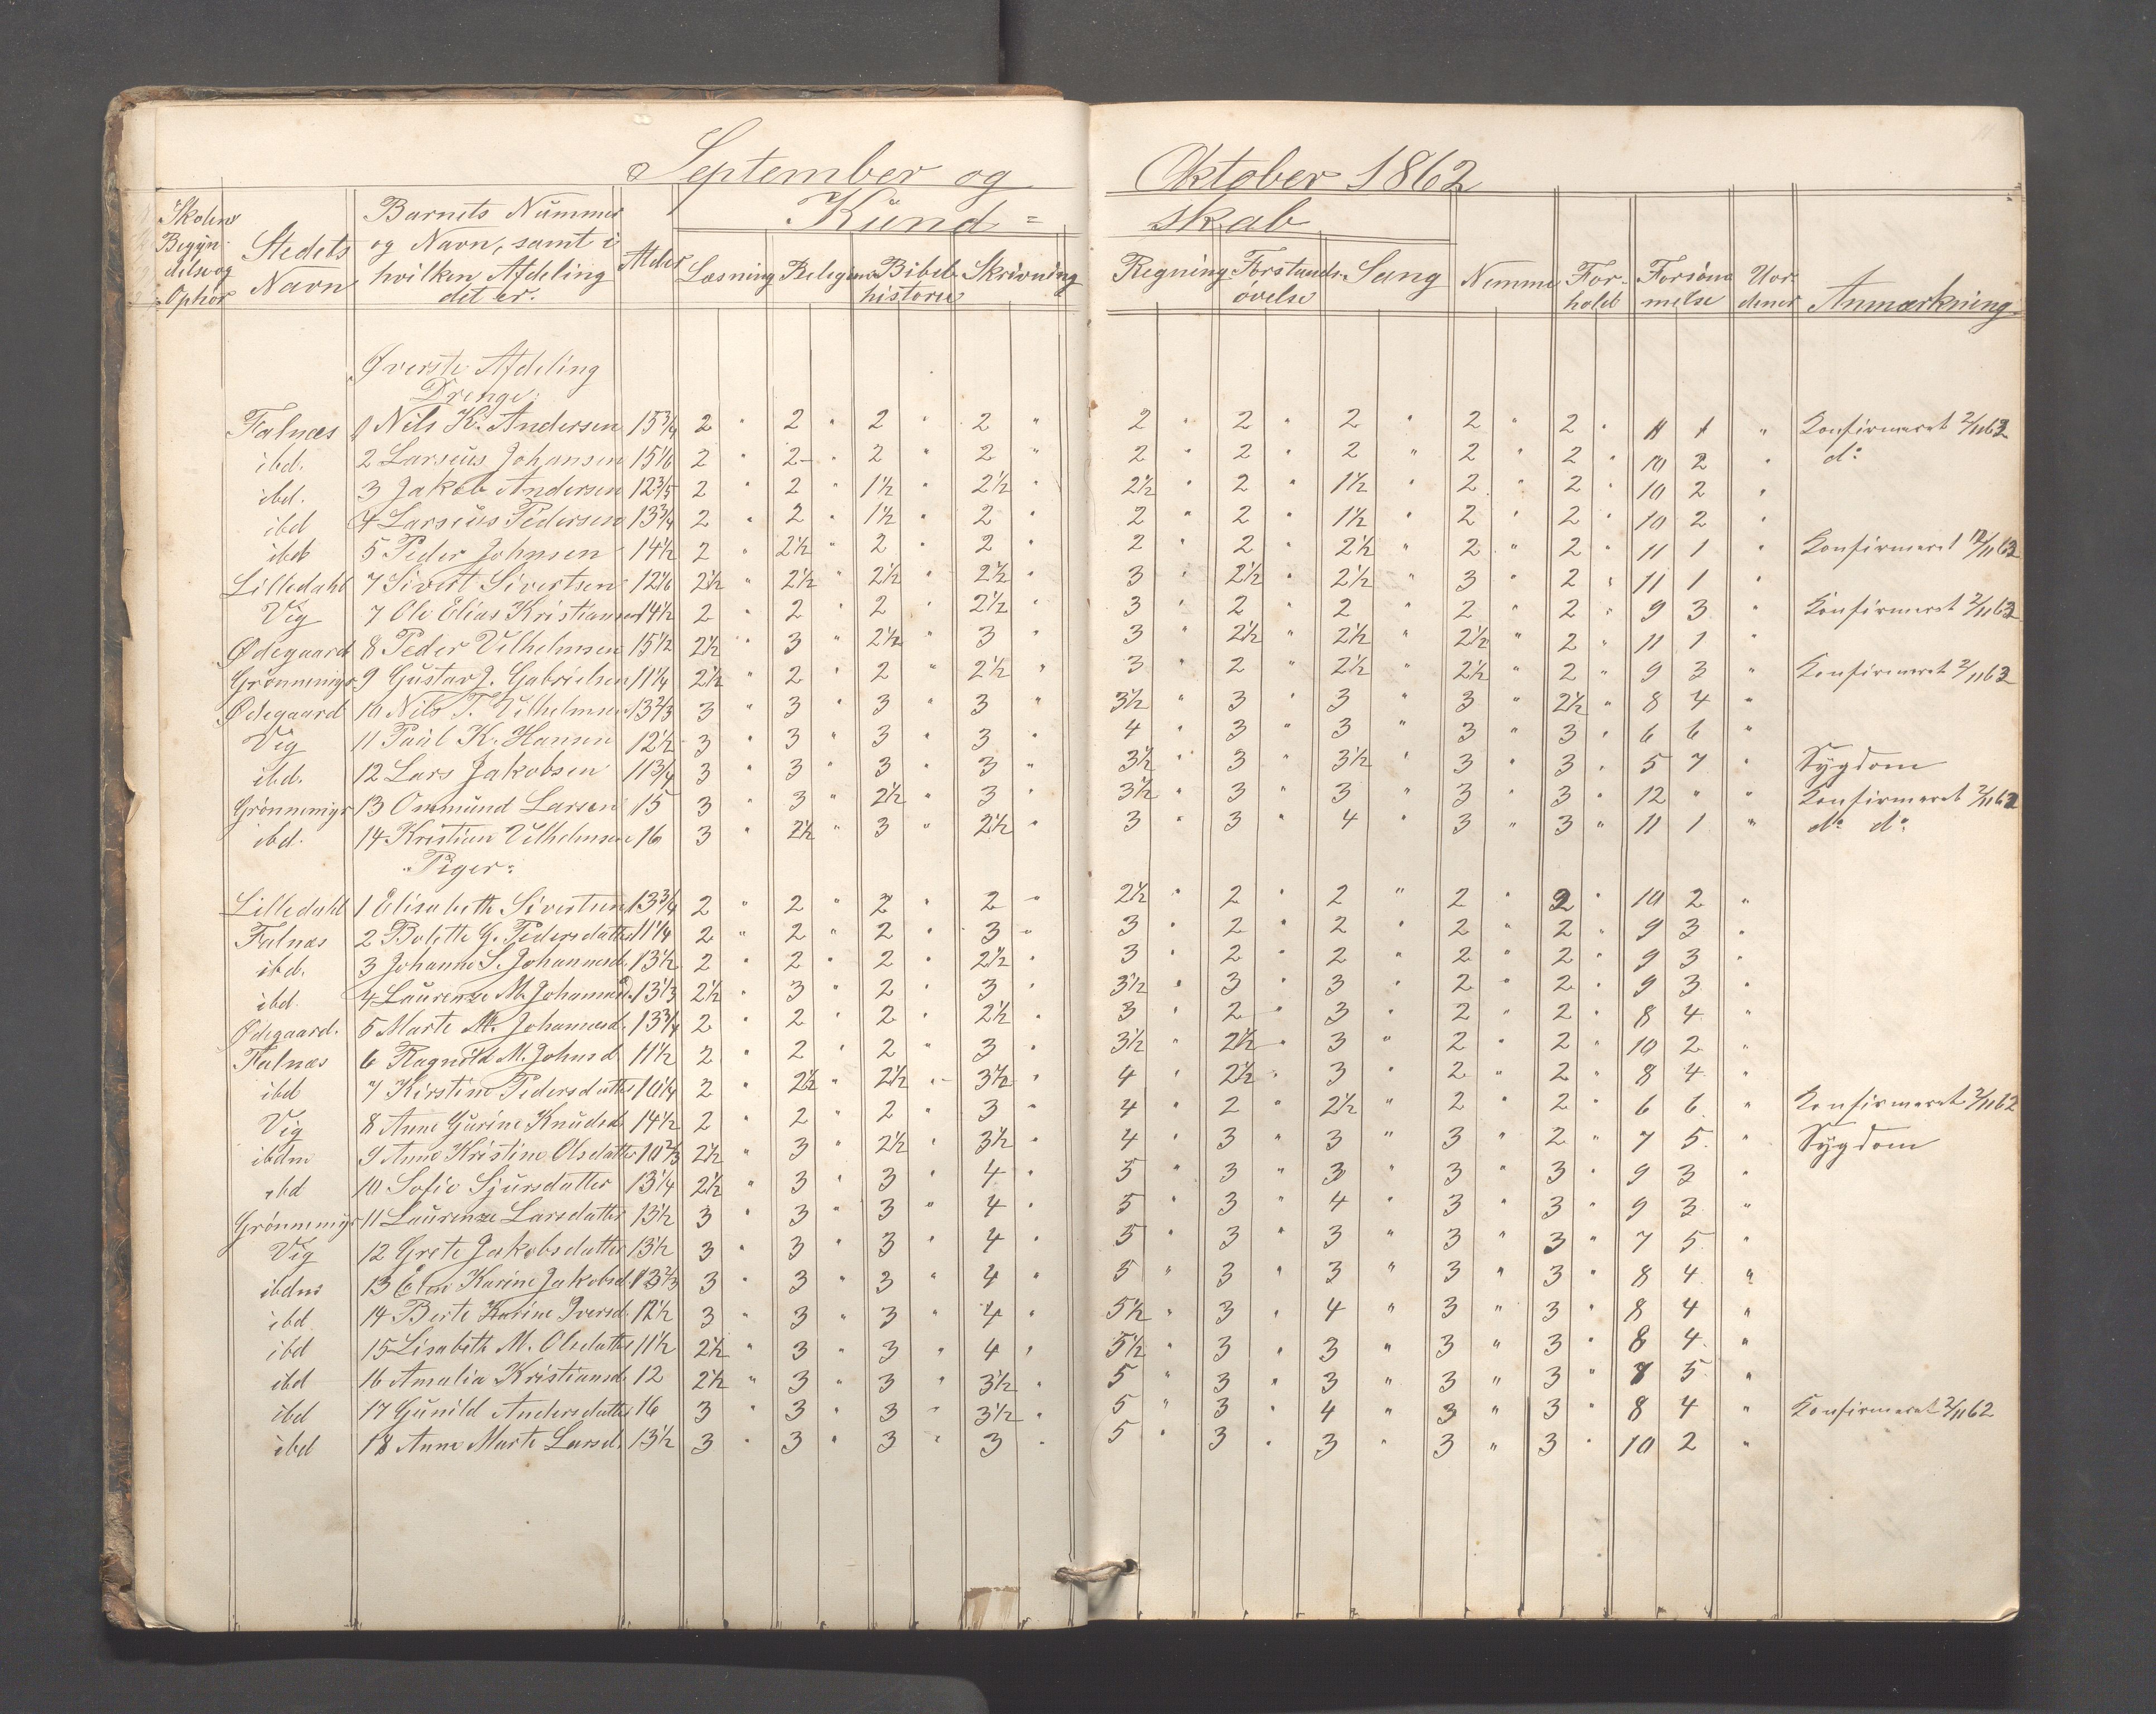 September og Oktober 1862
Skolens Begyndelse og Ophør | Stedets Navn | Barnets Nummer og Navn, samt i hvilken Afdeling det er. | Alder | Kundskab | Læsning | Religion | Bibelhistorie | Skrivning | Regning | Forstandsøvelse | Sang | Nemme | Forhold | Forsømmelse | Uordener | Anmærkning
Øverste Afdeling
Drenge:
Falnæs 1 Nils K. Andersen 15 3/4 2 " 2 " 2 " 2 " 2 " 2 " 2 " 2 " 2 " 11 1 " Konfirmeret 2/11 62
ibd. 2 Larseus Johansen 15 1/6 2 " 2 " 2 " 2 " 2 " 2 " 2 " 2 " 2 " 10 2 " do
ibd. 3 Jakob Andersen 12 3/5 2 " 2 " 1½ " 2½ " 2½ " 2 " 1½ " 2 " 2 " 10 2 "
ibd 4 Larseus Pedersen 13 3/4 2 " 2 " 1½ " 2 " 2 " 2 " 1½ " 2 " 2 " 10 2 "
ibd 5 Peder Johnsen 14½ 2 " 2½ " 2 " 2 " 2 " 2 " 2½ " 2 " 2 " 11 1 " Konfirmeret
Lilledahl 7 Sivert Sivertsen 12 1/6 2½ " 2½ " 2½ " 2½ " 3 " 2½ " 2½ " 3 " 2 " 11 1 "
Vig 7 Ole Elias Kristiansen 14½ 2 " 2 " 2 " 2½ " 3 " 2 " 2 " 2 " 2 " 9 3 " Konfirmeret 2/11 62
Ødegaard 8 Peder Vilhelmsen 15½ 2½ " 3 " 2½ " 3 " 3 " 2½ " 2½ " 2½ " 2 " 11 1
Grønnemyr 9 Gustav J. Gabrielsen 11 1/4 2½ " 2 " 2 " 2½ " 3 " 2 " 2½ " 2½ " 2 " 9 3 " Konfirmeret 2/11 62
Ødegaard 10 Nils T. Vilhelmsen 13 2/3 3 " 3 " 3 " 3 " 3½ " 3 " 3 " 3 " 2½ " 8 4 "
Vig 11 Paul K. Hansen 12½ 3 " 3 " 3 " 3 " 4 " 3 " 3 " 3 " 3 " 6 6 "
ibd. 12 Lars Jakobsen 11 3/4 3 " 3 " 3 " 3 " 3½ " 3 " 3½ " 3 " 3 " 5 7 " Sygdom
Grønnemyr 13 Ommund Larsen 15 3 " 3 " 2½ " 3 " 3½ " 3 " 3 " 3 " 3 " 12 " " Konfirmeret 2/11 62
ibd. 14 Kristian Vilhelmsen 16 3 " 2½ " 3 " 2½ " 3 " 3 " 4 " 3 " 3 " 11 1 " do do
Piger:
Lilledahl 1 Elisabeth Sivertsen 13 3/4 2 " 2 " 2 " 2 " 2½ " 2 " 2 " 2 " 2 " 10 2 "
Falnæs 2 Bolette G. Pedersdatter 11 1/4 2 " 2 " 2 " 3 " 3 " 2 " 2 " 2 " 2 " 9 3 "
ibd. 3 Johanne S. Johannesd. 13½ 2 " 2 " 2 " 2½ " 3 " 2 " 2 " 2 " 2 " 9 3 "
ibd. 4 Laurense M. Johannesd. 13 1/3 2½ " 3 " 2 " 3 " 3½ " 3 " 3 " 2 " 2 " 9 3 "
Ødegaard. 5 Marte M. Johannesd. 13 3/4 2 " 2 " 2 " 2½ " 3 " 2 " 3 " 2 " 2 " 8 4 "
Falnæs 6 Ragnild M. Johnsd. 11½ 2 " 2 " 2 " 3 " 3½ " 2½ " 3 " 2 " 2 " 10 2 "
ibd 7 Kirstine Pedersdatter 10 1/4 2 " 2½ " 2½ " 3½ " 4 " 2½ " 3 " 2 " 2 " 8 4 "
Vig 8 Anne Gurine Knudsd. 14½ 2 " 2 " 2 " 3 " 4 " 2 " 2½ " 2 " 2 " 6 6 " Konfirmeret 2/11 62
ibdm 9 Anne Kristine Olsdatter 10 2/3 2½ " 3 " 2½ " 3½ " 4 " 3 " 3 " 3 " 2 " 7 5 " Sygdom
ibd 10 Sofie Sjursdatter 13 1/4 2½ " 3 " 3 " 4 " 5 " 3 " 3 " 3 " 3 " 9 3 "
Grønnemyr 11 Laurense Larsdatter 13½ 3 " 3 " 3 " 4 " 5 " 3 " 4 " 3 " 3 " 9 3 "
Vig 12 Grete Jakobsdatter 13½ 3 " 3 " 3 " 4 " 5 " 3 " 3 " 3 " 3 " 7 5 "
ibdm 13 Elen Karine Jakobsd. 12 2/3 3 " 3 " 3 " 4 " 5 " 3 " 3 " 3 " 3 " 8 4 "
ibd 14 Berte Karine Iversd. 12½ 3 " 3 " 3 " 4 " 5½ " 3 " 4 " 3 " 3 " 8 4 "
ibd 15 Lisabeth M. Olsdatter 11½ 2½ " 3 " 3 " 4 " 5½ " 3 " 3 " 3 " 3 " 8 4 "
ibd 16 Amalia Kristiansd. 12 2½ " 3 " 3 " 3½ " 5 " 3 " 3 " 3 " 3 " 7 5 "
ibd 17 Gunild Andersdatter 16 3 " 3 " 3 " 3½ " 5 " 3 " 4 " 3 " 3 " 8 4 " Konfirmeret 2/11 62
ibd 18 Anne Marte Larsd. 13½ 3 " 3 " 3 " 3 " 5 " 3 " 3 " 3 " 3 " 10 2 "